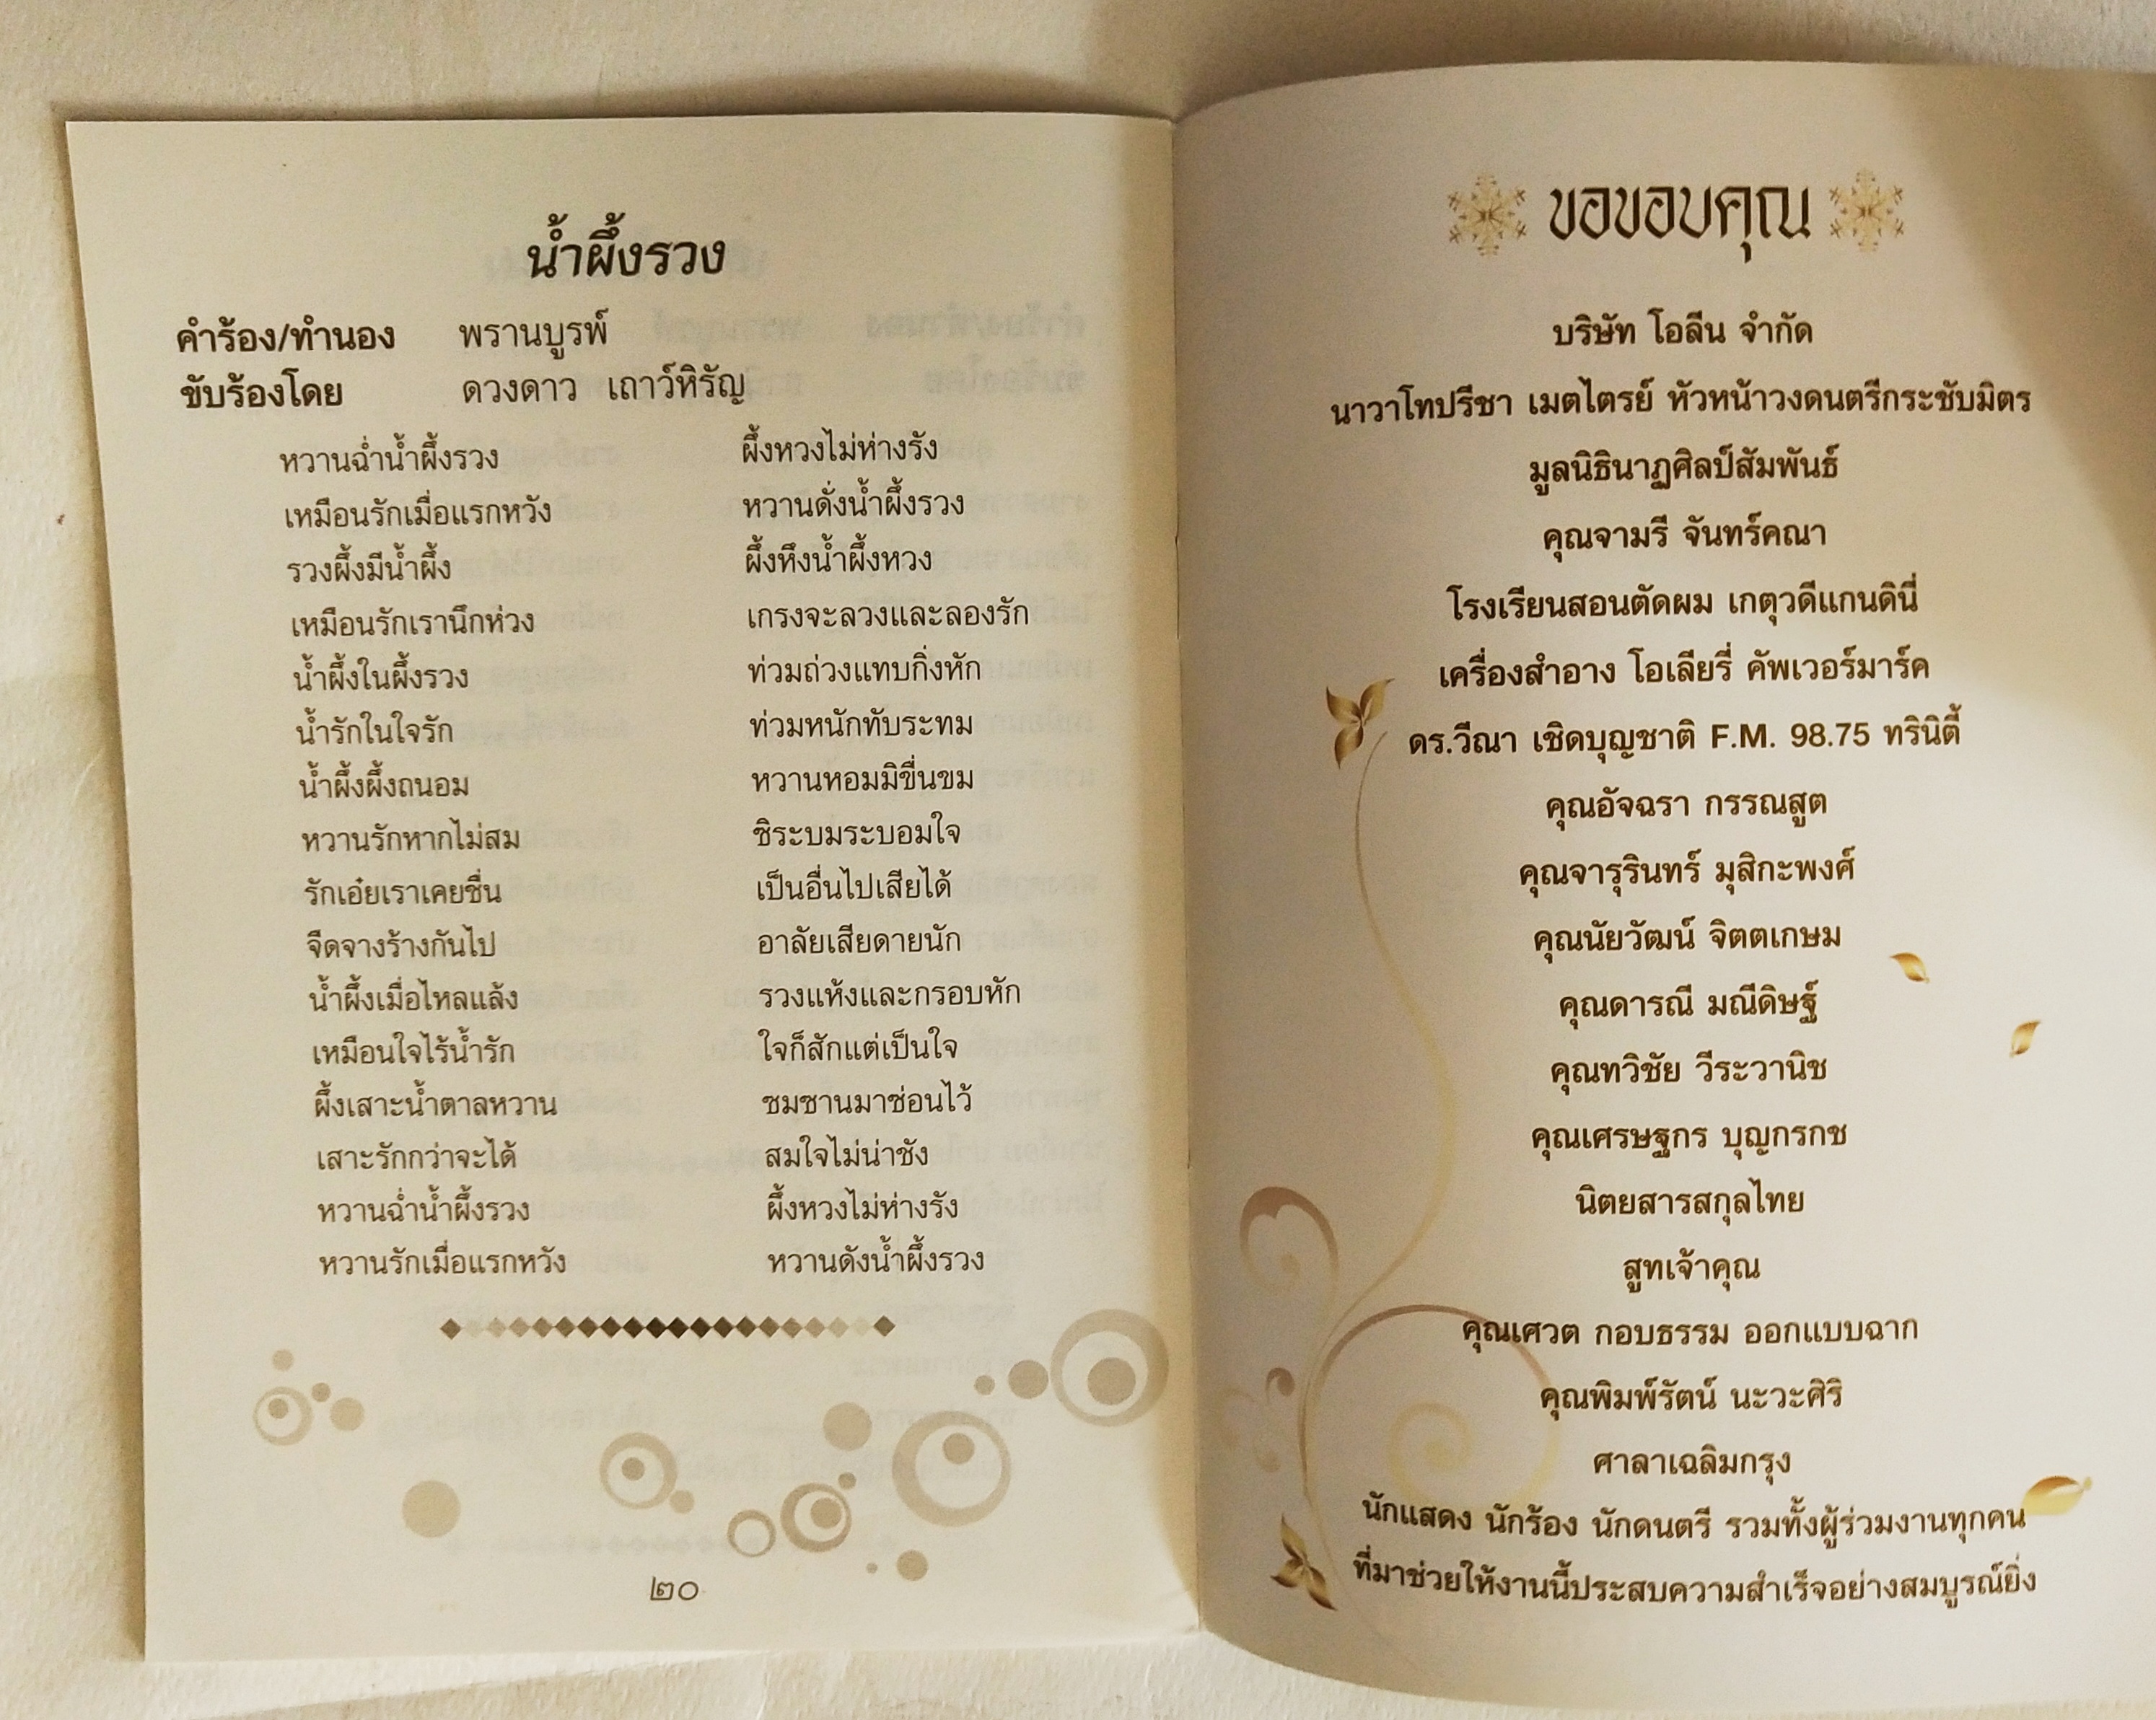 น้ำผึ้งรวง
คำร้อง/ทำนอง พรานบูรพ์
ขับร้องโดย ดวงดาว เถาว์หิรัญ
หวานฉ่ำน้ำผึ้งรวง ผึ้งหวงไม่ห่างรัง
เหมือนรักเมื่อแรกหวัง หวานดั่งน้ำผึ้งรวง
รวงผึ้งมีน้ำผึ้ง ผึ้งหึงน้ำผึ้งหวง
เหมือนรักเรานึกห่วง เกรงจะลวงและลองรัก
น้ำผึ้งในผึ้งรวง ท่วมถ่วงแทบกิ่งหัก
น้ำรักในใจรัก ท่วมหนักทับระทม
น้ำผึ้งผึ้งถนอม หวานหอมมิขื่นขม
หวานรักหากไม่สม ชิระบมระบอมใจ
รักเอ๋ยเราเคยชื่น เป็นอื่นไปเสียได้
จืดจางร้างกันไป อาลัยเสียดายนัก
น้ำผึ้งเมื่อไหลแล้ง รวงแห้งและกรอบหัก
เหมือนใจไร้น้ำรัก ใจก็สักแต่เป็นใจ
ผึ้งเสาะน้ำตาลหวาน ซมซานมาซ่อนไว้
เสาะรักกว่าจะได้ สมใจไม่น่าชัง
หวานฉ่ำน้ำผึ้งรวง ผึ้งหวงไม่ห่างรัง
หวานรักเมื่อแรกหวัง หวานดังน้ำผึ้งรวง
๒๐
ขอขอบคุณ
บริษัท โอลีน จำกัด
นาวาโทปรีชา เมตไตรย์ หัวหน้าวงดนตรีกระชับมิตร
มูลนิธินาฏศิลป์สัมพันธ์
คุณจามรี จันทร์คณา
โรงเรียนสอนตัดผม เกตุวดีแกนดินี่
เครื่องสำอาง โอเลียรี่ คัพเวอร์มาร์ค
ดร.วีณา เชิดบุญชาติ F.M. 98.75 ทรินิตี้
คุณอัจฉรา กรรณสูต
คุณจารุรินทร์ มุสิกะพงศ์
คุณนัยวัฒน์ จิตตเกษม
คุณดารณี มณีดิษฐ์
คุณทวิชัย วีระวานิช
คุณเศรษฐกร บุญกรกช
นิตยสารสกุลไทย
สูทเจ้าคุณ
คุณเศวต กอบธรรม ออกแบบฉาก
คุณพิมพ์รัตน์ นะวะศิริ
ศาลาเฉลิมกรุง
นักแสดง นักร้อง นักดนตรี รวมทั้งผู้ร่วมงานทุกคน
ที่มาช่วยให้งานนี้ประสบความสำเร็จอย่างสมบูรณ์ยิ่ง